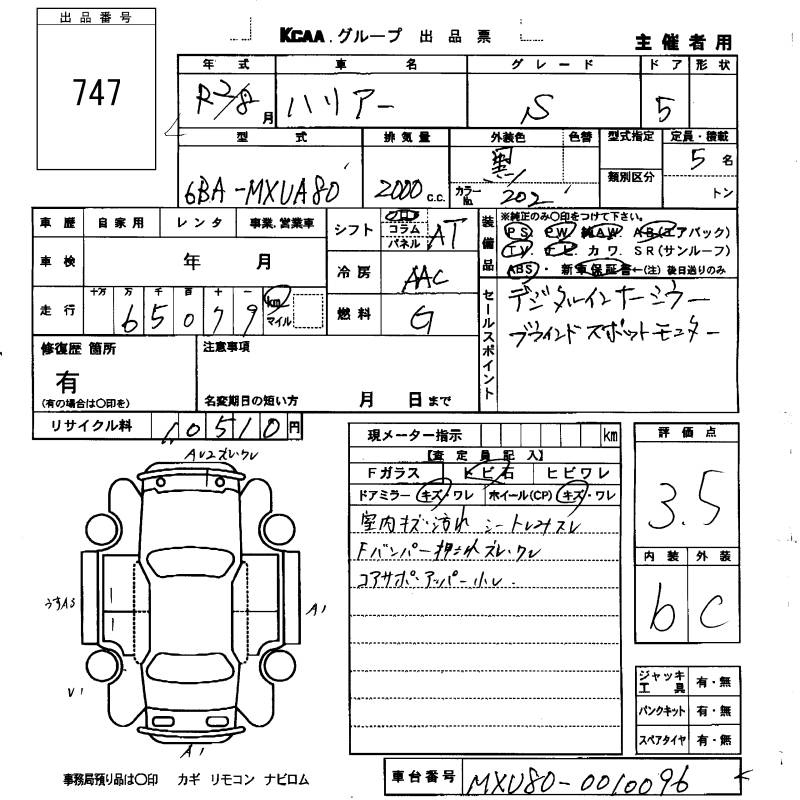 出品番号
747
KCAA.グループ 出品票
主催者用
年式 車名 グレード ドア 形状
R2/8月 ハリアー S 5
型式 排気量 外装色 色替 型式指定 定員・積載
6BA-MXUA80 2000 c.c. 黒 カラーNo. 202 類別区分 5名
トン
車歴 自家用 レンタ 事業.営業車
シフト フロア コラム パネル AT
装備品 ※純正のみ〇印をつけて下さい。
PS PW 純AW AB(エアバック)
TV ナビ カワ SR(サンルーフ)
ABS・新車保証書←(注)後日送りのみ
車検 年 月
冷房 AAC
走行 十万 万 千 百 十 一
65079 km マイル
燃料 G
セールスポイント
デジタルインナーミラー
ブラインドスポットモニター
修復歴 箇所
有
(有の場合は〇印を)
注意事項
名変期日の短い方 月 日まで
リサイクル料 10510円
現メーター指示 km
【査定員記入】
Fガラス トビ石 ヒビワレ
ドアミラー キズ・ワレ ホイール(CP) キズ・ワレ
室内キズ・汚れ シートしみスレ
Fバンパー押され ズレ・ワレ
コアサポ・アッパー小レ
評価点
3.5
内装 外装
b C
AU2ズレ・ワレ
うすA3
A1
V1
A1
ジャッキ工具 有・無
パンクキット 有・無
スペアタイヤ 有・無
事務局預り品は〇印 カギ リモコン ナビロム
車台番号 MXU80-0010096